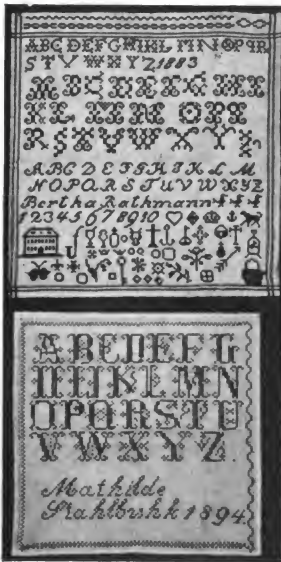 ABCDEFGHIKL MNOPQR
STVWXYZ 1883
A B C D E F G H I
K L M N O P Q
R S T U V W X Y Z
A B C D E F G H I K L M
N O P Q R S T U V W X Y Z
Bertha Rathmann
1 2 3 4 5 6 7 8 9 10
A B C D E F G
H I K L M N
O P Q R S T U
V W X Y Z.
Mathilde
1894.